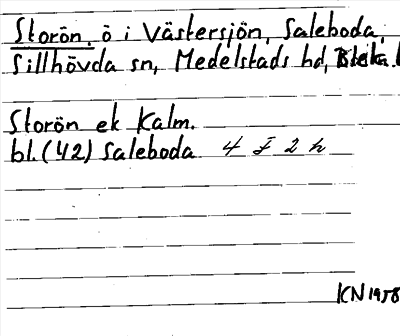 Storön, ö i Västersjön, Saleboda,
Sillhövda sn, Medelstads hd,
Storön ek Kalm.
bl. (42) Saleboda 4 F 2 h
KN 1958